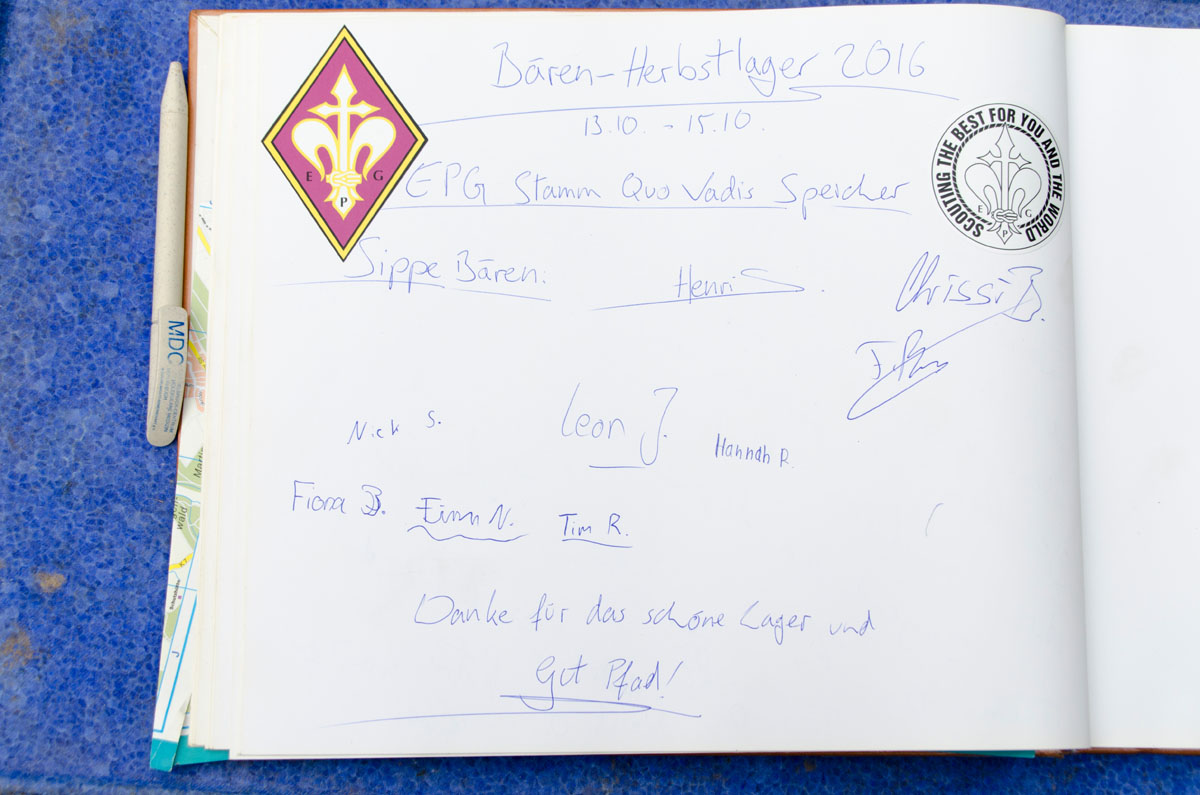 Bären-Herbstlager 2016
13.10. - 15.10.
EPG Stamm Quo Vadis Speicher
Sippe Bären:
Henri S.
Chrissi B.
Nick S.
Leon J.
Hannah R.
Fiona B.
Finn N.
Tim R.
Danke für das schöne Lager und
Gut Pfad!
E G
P
SCOUTING THE BEST FOR YOU AND THE WORLD
E G
P
MDC